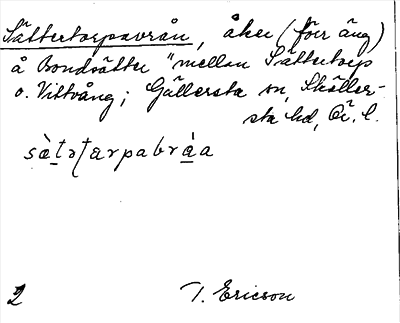 Sättertorpavrån, åker (förr äng)
å Bondsätter "mellan Sättertorp
o. Vittvång; Gällersta sn, Sköller-
sta hd, Ö. l.
T. Ericson
2